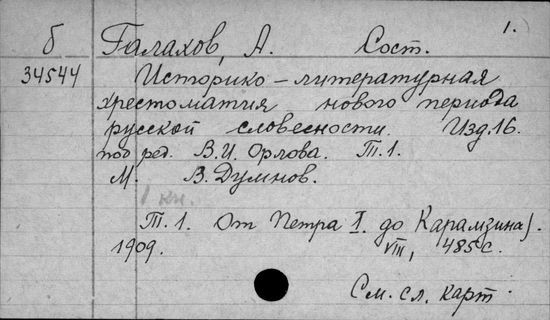 1.
б Галахов, А. Сост.
34544 Историко-литературная
хрестоматия нового периода
русской словесности. Изд. 16.
под ред. В.И. Орлова. Т.1.
М. В. Думнов.
1 кн.
Т.1. От Петра I до Карамзина).
1909. VIII, 485 с.
См. сл. карт.